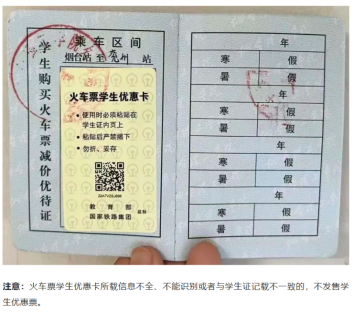 学生购买火车票减价优待证
乘车区间
烟台站至兖州站
火车票学生优惠卡
• 使用时必须粘贴在
学生证内页上
• 粘贴后严禁撕下
• 勿折、妥存
教育部
国家铁路集团
监制
年
寒假
暑假
年
寒假
暑假
年
寒假
暑假
年
寒假
暑假
注意：火车票学生优惠卡所载信息不全、不能识别或者与学生证记载不一致的，不发售学
生优惠票。